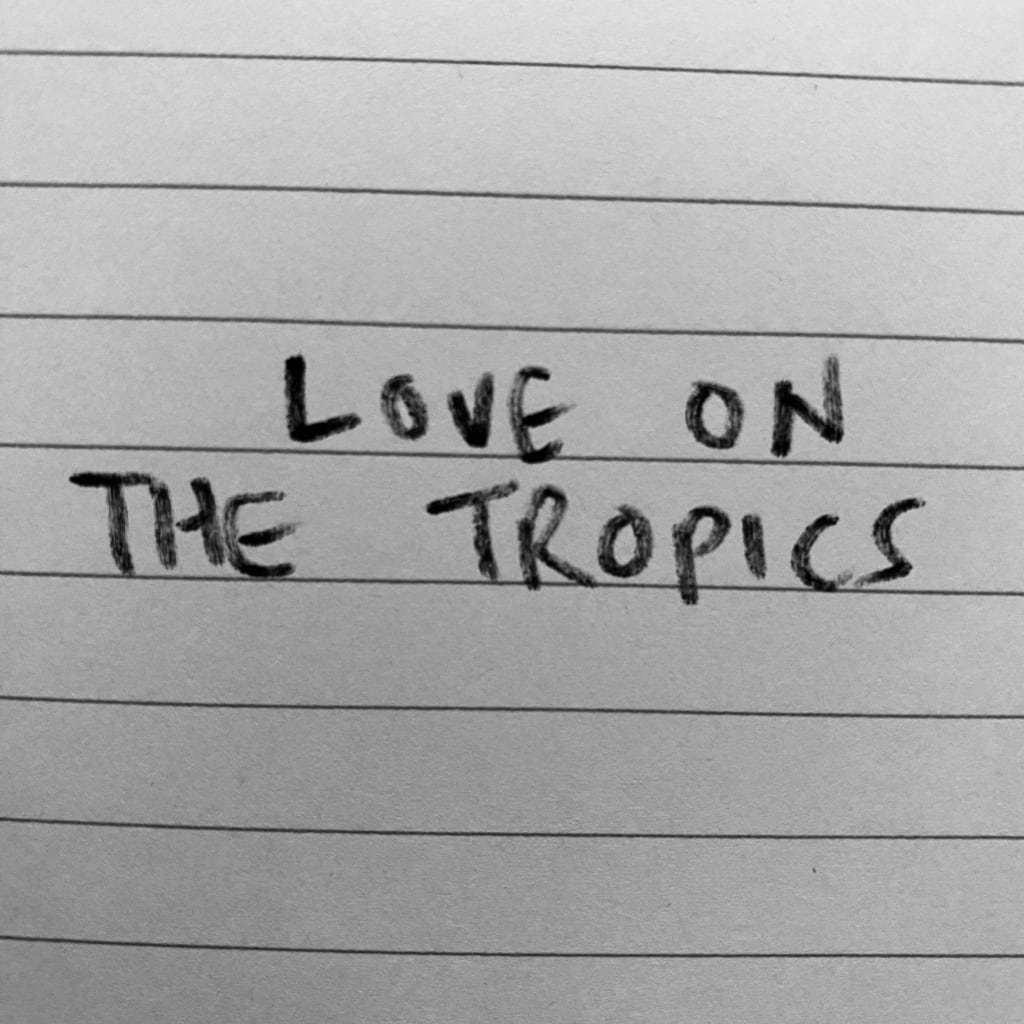 LOVE ON
THE TROPICS